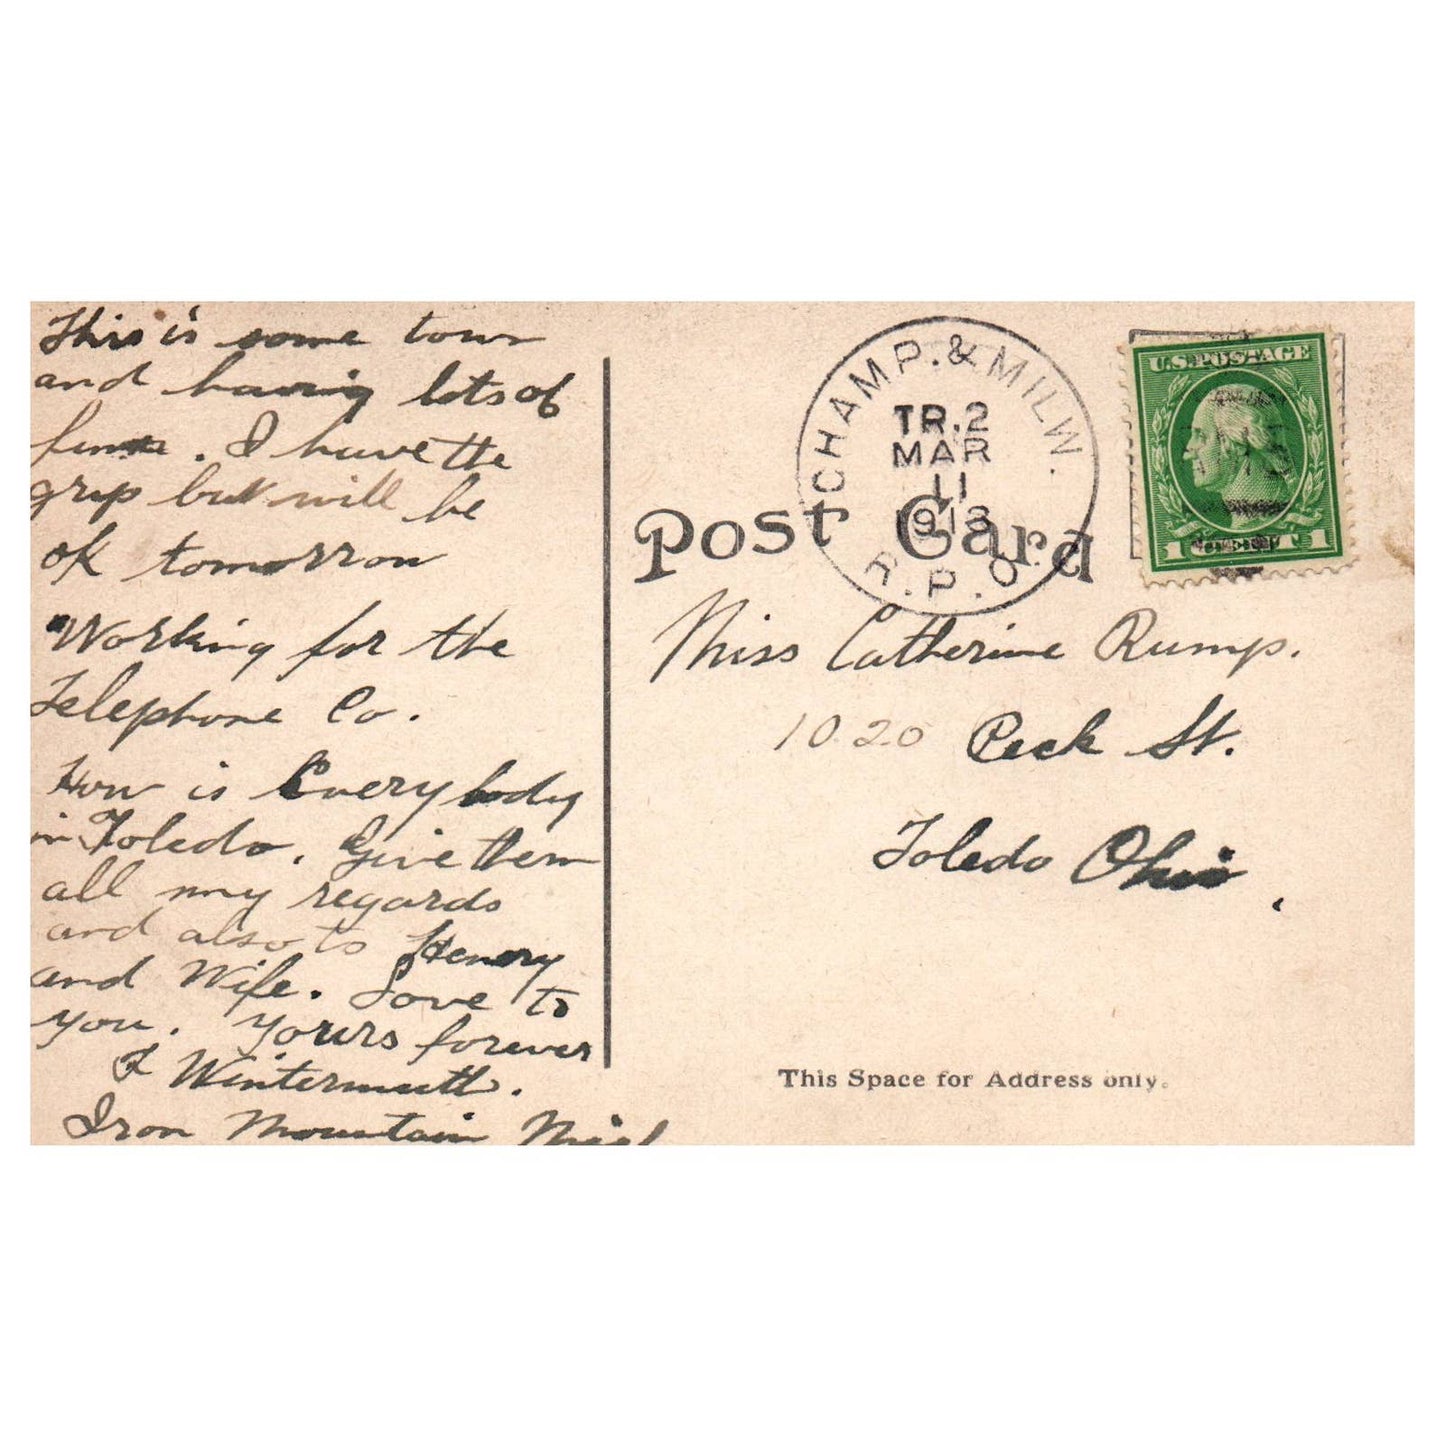 This is some town
and having lots of
fun. I have the
grip but will be
ok tomorrow
Working for the
Telephone Co.
How is Everybody
in Toledo. Give them
all my regards
and also to Henry
and Wife. Love to
you. Yours forever
F Wintermutt.
Iron Mountain Mich
CHAMP. & MILW.
TR. 2
MAR
11
1913
R.P.O.
U.S. POSTAGE
1 1
Post Card
Miss Catherine Rump.
1020 Peck St.
Toledo Ohio,
This Space for Address only.